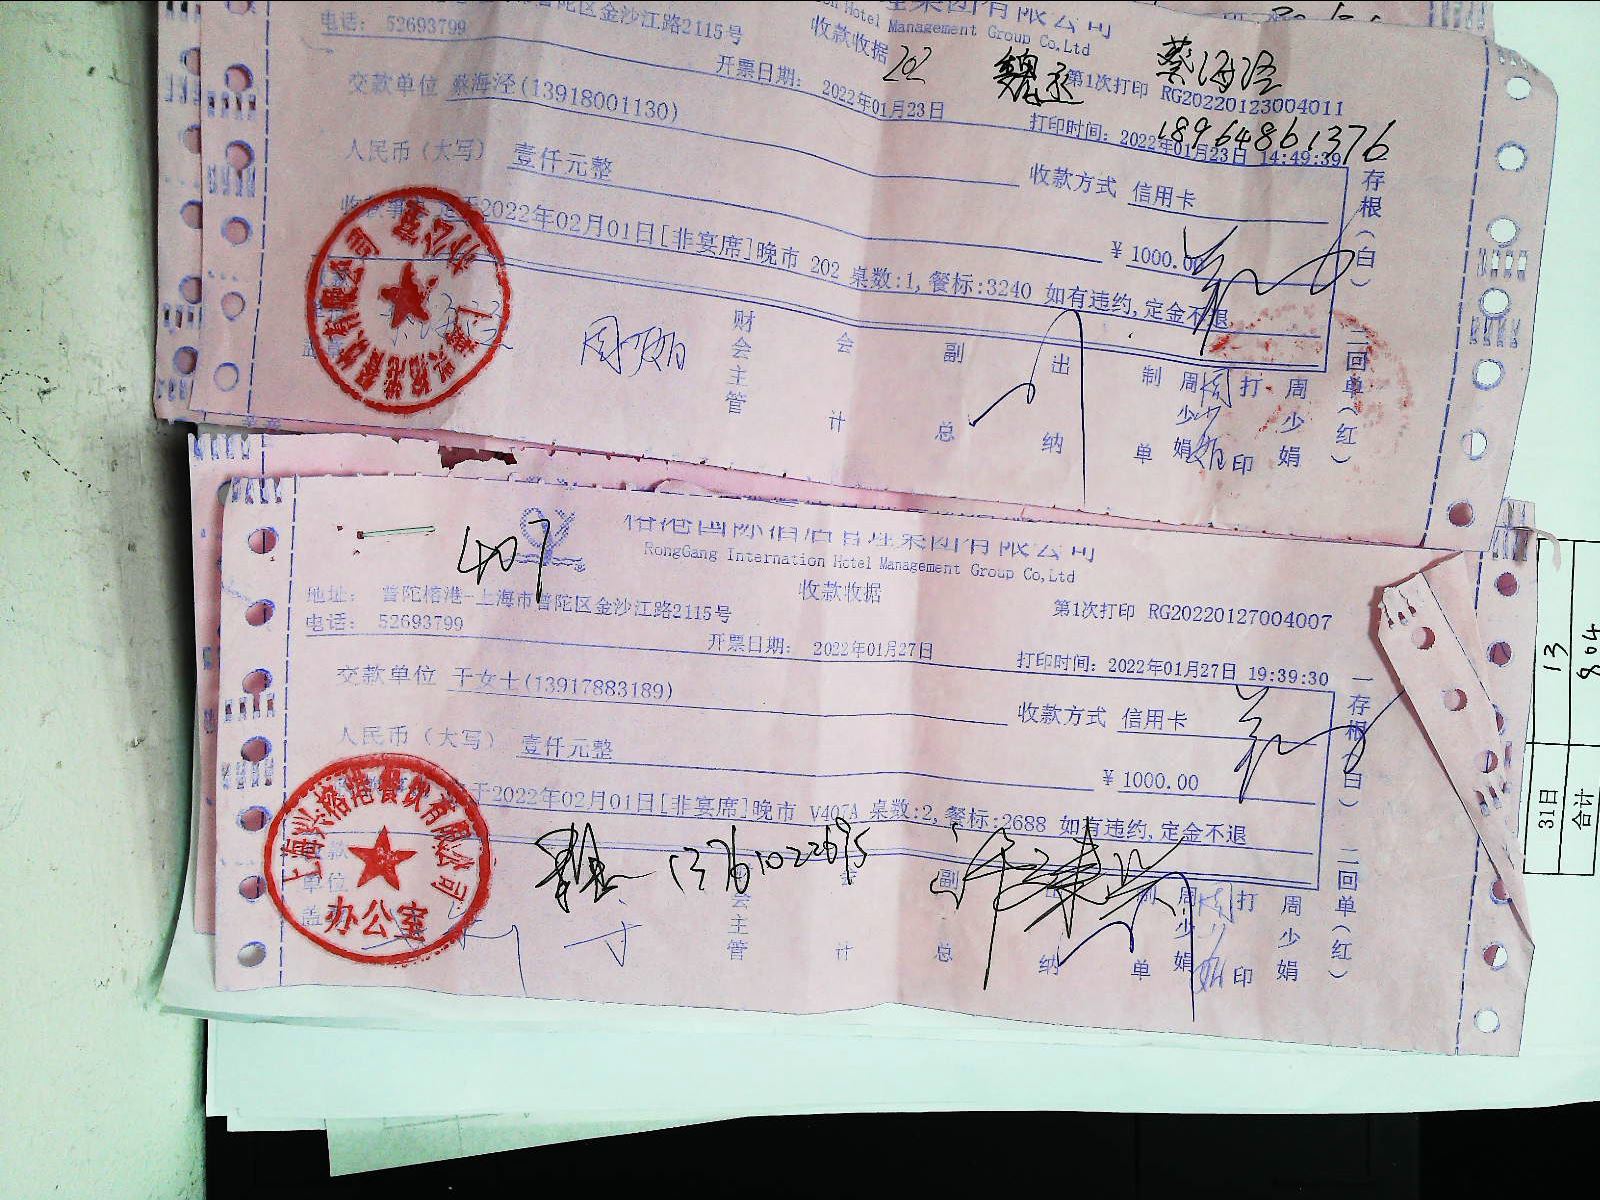 Management Group Co,Ltd
普陀区金沙江路2115号
收款收据
202
蔡海泾
电话： 52693799
开票日期： 2022年01月23日
第1次打印 RG20220123004011
18964861376
交款单位 蔡海泾(13918001130)
打印时间：2022年01月23日 14:49:39
人民币（大写） 壹仟元整
收款方式 信用卡
2022年02月01日[非宴席]晚市 202 桌数:1,餐标:3240 如有违约,定金不退
¥ 1000.00
存根（白）
二回单（红）
财会主管
会计
副总
出纳
制单
周少娟
打印
周少娟
办公室
407
RongGang Internation Hotel Management Group Co,Ltd
收款收据
地址： 普陀榕港-上海市普陀区金沙江路2115号
电话： 52693799
第1次打印 RG20220127004007
开票日期： 2022年01月27日
打印时间：2022年01月27日 19:39:30
交款单位 于女士(13917883189)
收款方式 信用卡
人民币（大写） 壹仟元整
¥ 1000.00
于2022年02月01日[非宴席]晚市 V407A 桌数:2,餐标:2688 如有违约,定金不退
一存根（白）
二回单（红）
13761022695
会主管
计
副总
纳
制单
周少娟
打印
周少娟
上海兴榕港餐饮有限公司
办公室
13
804
31日
合计